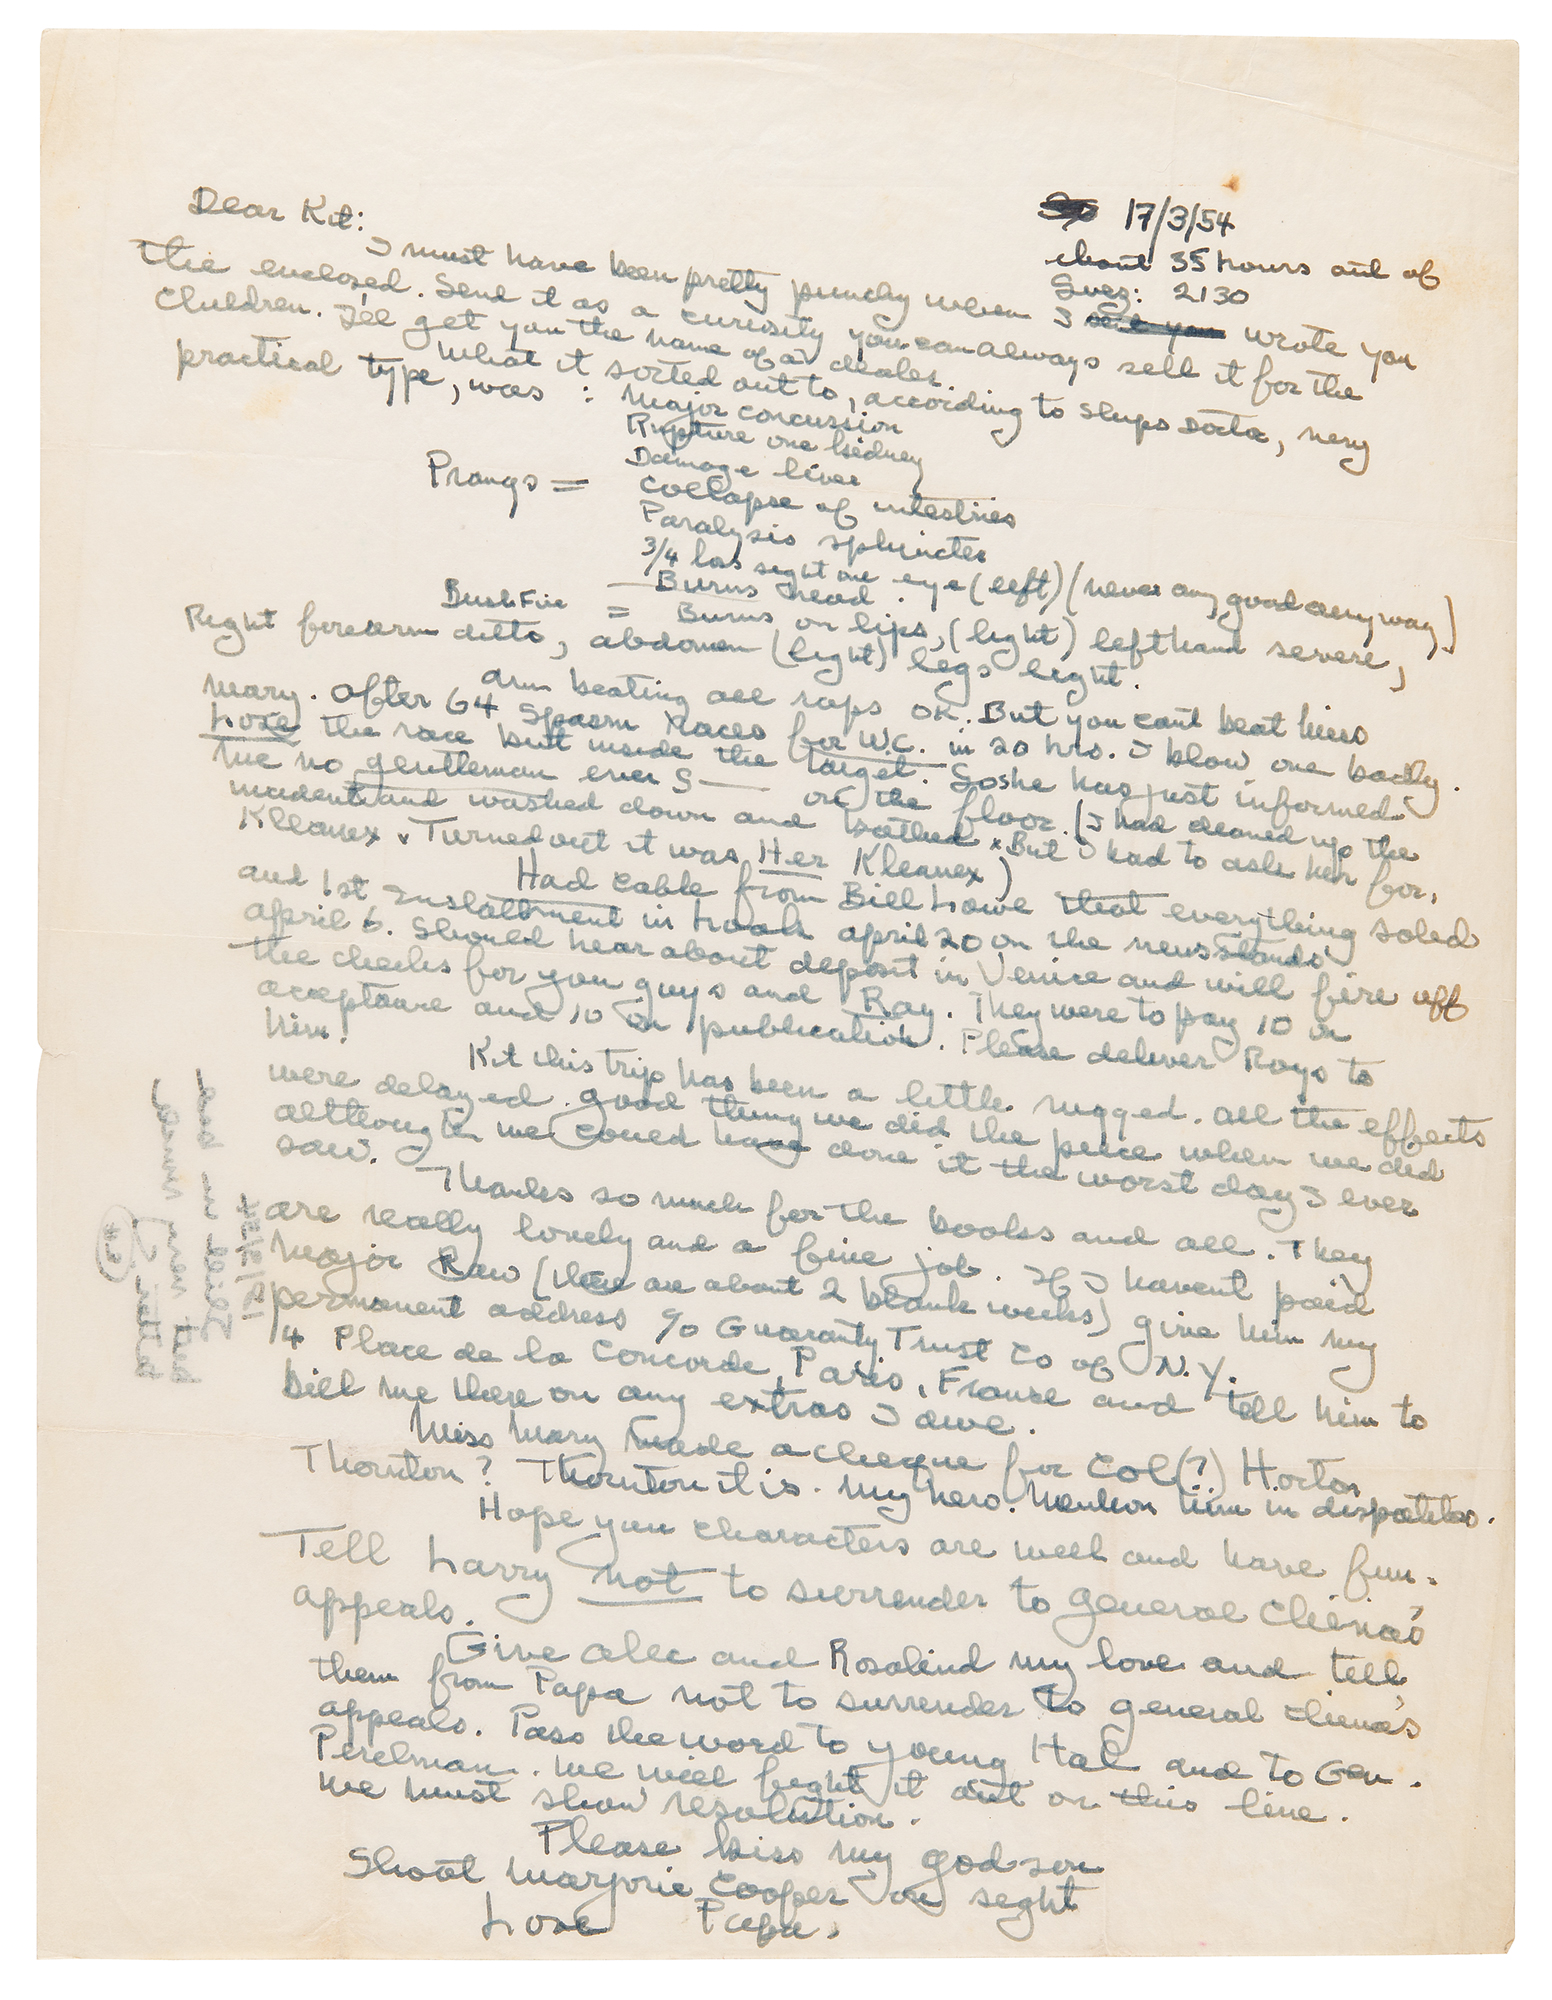 17/3/54
about 35 hours out of
Suez: 2130
Dear Kit:
I must have been pretty punchy when I sent you wrote you
the enclosed. Send it as a curiosity you can always sell it for the
children. I'll get you the name of a dealer.
What it sorted out to, according to Ships Doctor, very
practical type, was : Major concussion
Rupture one kidney
Damage liver
Prangs = Collapse of intestines
Paralysis sphincter
3/4 loss sight one eye (left) (never any good anyway)
Burns head.
Bush Fire = Burns on lips, (light) left hand severe,
Right forearm ditto, abdomen (light) legs light.
Am beating all raps OK. But you cant beat Miss
Mary. After 64 Spasm Races for W.C. in 20 hrs. I blow one badly.
Lose the race but inside the target. So she has just informed
me no gentleman ever S— on the floor. (I had cleaned up the
incident and washed down and bathed x But I had to ask her for
Kleanex x Turned out it was Her Kleanex)
Had cable from Bill Lowe that everything solid
and 1st Installment in Look april 20 on the newsstands
april 6. Should hear about deposit in Venice and will fire off
the checks for you guys and Ray. They were to pay 10 on
acceptance and 10 on publication. Please deliver Rays to
him!
Kit this trip has been a little rugged. All the effects
were delayed. Good thing we did the piece when we did
although we could have done it the worst day I ever
saw.
Thanks so much for the books and all. They
are really lovely and a fine job. If I havent paid
Major Raw (there are about 2 blank weeks) give him my
permanent address c/o Guaranty Trust Co of N.Y.
4 Place de la Concorde, Paris, France and tell him to
bill me there on any extras I owe.
Miss Mary made a cheque for Col(?) Horton
Thornton? Thornton it is. My hero. Mention him in dispatches.
Hope you characters are well and have fun.
Tell Larry not to surrender to General China's
appeals.
Give Alec and Rosalind my love and tell
them from Papa not to surrender to General China's
appeals. Pass the word to young Hal and to Gen.
Perelman. We will fight it out on this line.
We must show resolution.
Please kiss my god son
Shoot Marjorie Cooper on sight
Love Papa.
17/3/54